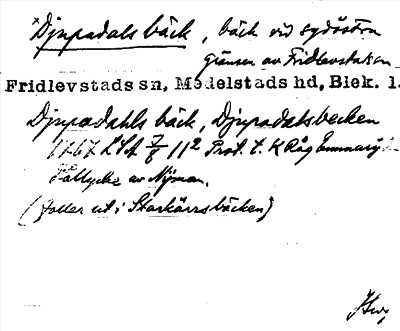 ×Djupadals bäck, bäck vid sydöstra
gränsen av Fridlevstad sn
Fridlevstads sn, Medelstads hd, Blek. l.
Djupædahls bäck, Djupadalsbecken
1767 LSA 7/8 11² Prot. t. K
Fållycke av Nyman.
(faller ut i Starkärrsbäcken)